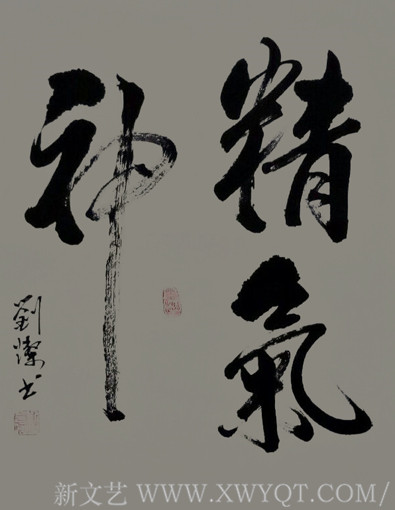 精氣
神
劉書
新文艺 WWW.XWYQT.COM/